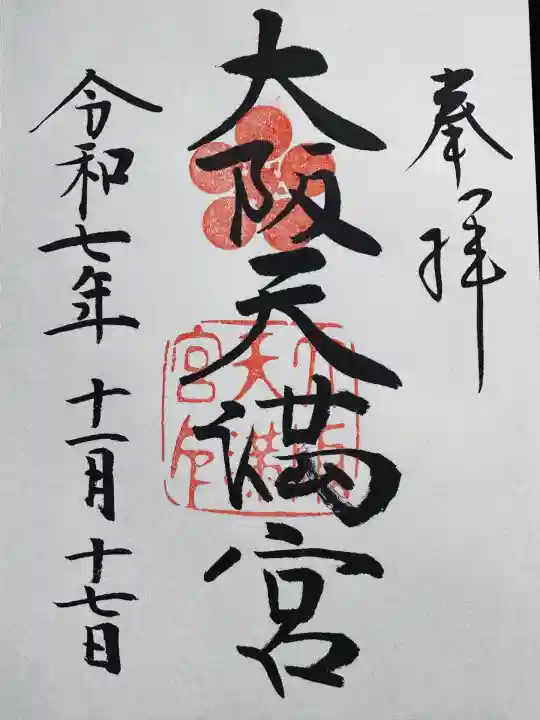 奉拝
大阪天満宮
大阪天満宮印
令和七年 十一月 十七日